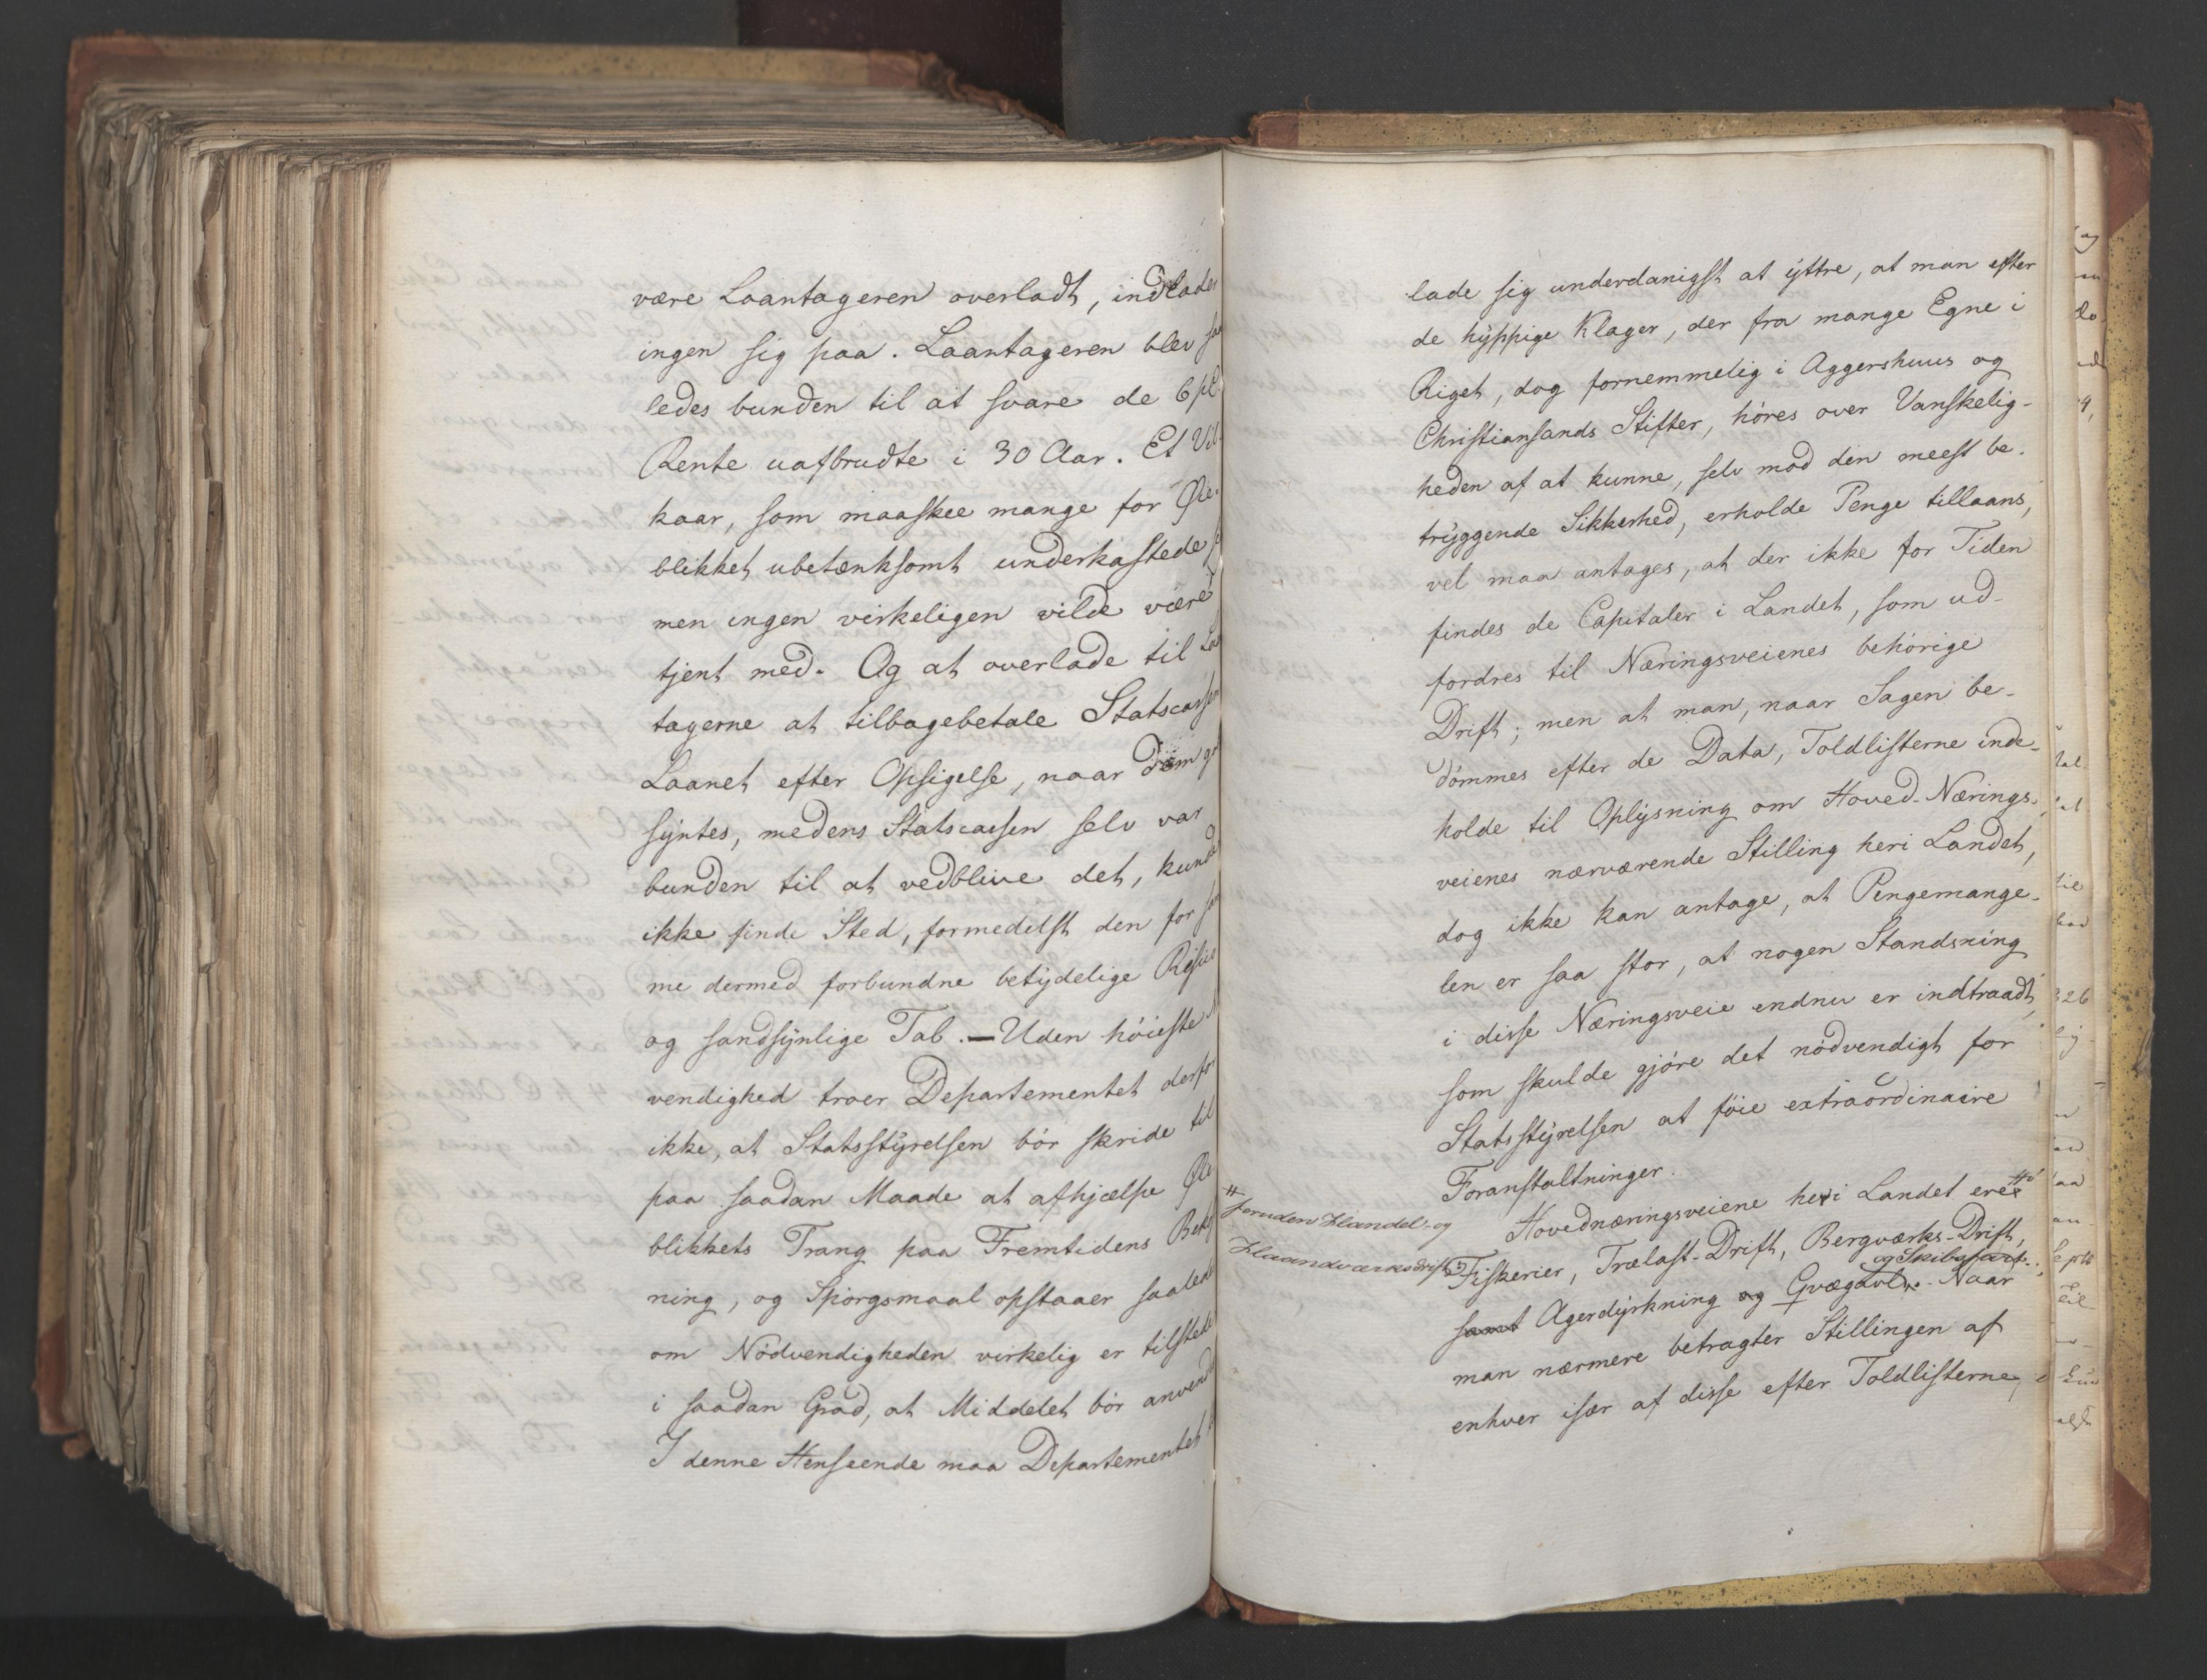 være Laantageren overladt, indlader
ingen sig paa. Laantageren blev saa
ledes bunden til at svare de 6 pC
Rente uafbrudte i 30 Aar. Et Vil-
kaar, som maaskee mange for Øie-
blikket ubetænksomt underkastede
men ingen virkeligen vilde være
tjent med. Og at overlade til Laan
tagerne at tilbagebetale Statscassen
Laanet efter Opsigelse, naar dem
syntes, medens Statscassen selv var
bunden til at vedblive det, kunde
ikke finde Sted, formedelst den for sam
me dermed forbundne betydelige Risico
og sandsynlige Tab. — Uden høieste
vendighed troer Departementet derfor
ikke, at Statsstyrelsen bør skride til
paa saadan Maade at afhjælpe Øie
blikkets Trang paa Fremtidens Bekost
ning, og Spørgsmaal opstaaer saaledes
om Nødvendigheden virkelig er tilstede
i saadan Grad, at Middelet bør anvendes
I denne Henseende maa Departementet
lade sig underdanigst at yttre, at man efter
de hyppige Klager, der fra mange Egne i
Riget, dog fornemmelig i Aggershuus og
Christiansands Stifter, høres over Vanskelig-
heden af at kunne, selv mod den meest be-
tryggende Sikkerhed, erholde Penge tillaans,
vel maa antages, at der ikke for Tiden
findes de Capitaler i Landet, som ud-
fordres til Næringsveienes behørige
Drift; men at man, naar Sagen be-
dømmes efter de Data, Toldlisterne inde-
holde til Oplysning om Hoved-Nærings-
veienes nærværende Stilling heri Landet,
dog ikke kan antage, at Pengemange-
len er saa stor, at nogen Standsning
i disse Næringsveie endnu er indtraadt,
som skulde gjøre det nødvendigt for
Statsstyrelsen at føie extraordinaire
Foranstaltninger.
Hovednæringsveiene heri Landet ere #
# foruden Handel- og
Haandværksdrift
Fiskerier, Trælast-Drift, Bergværks-Drift,
og Skibsfart.
samt Agerdyrkning og Qvægavl. Naar
man nærmere betragter Stillingen af
enhver især af disse efter Toldlisterne,